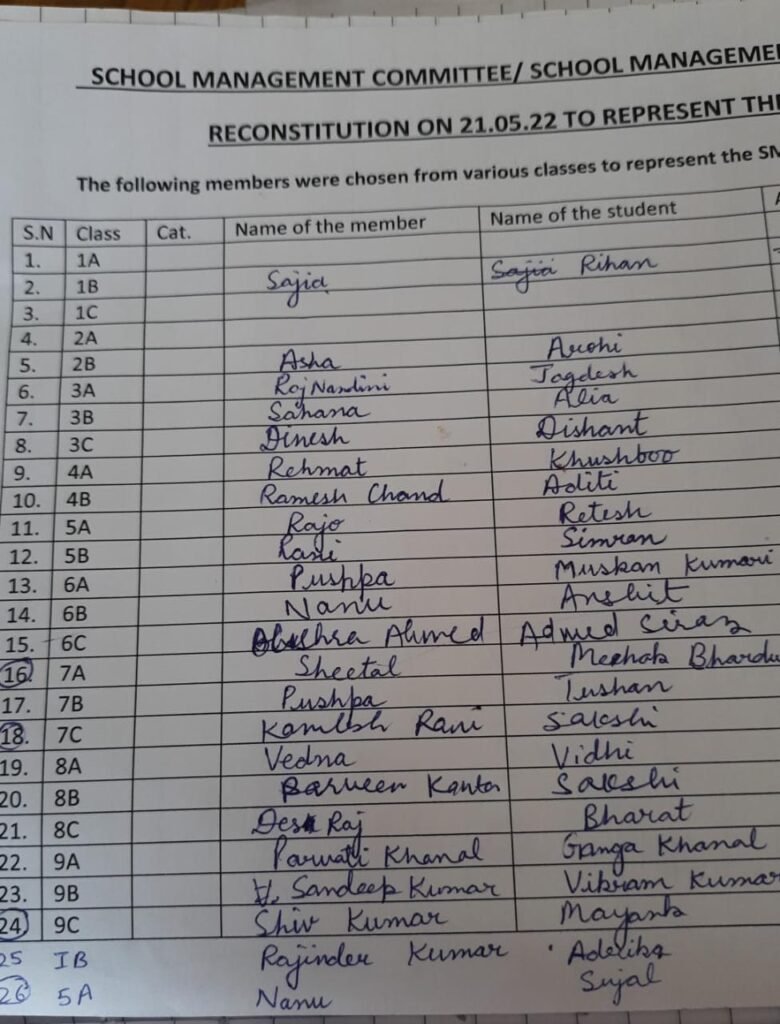 SCHOOL MANAGEMENT COMMITTEE/ SCHOOL MANAGEME
RECONSTITUTION ON 21.05.22 TO REPRESENT TH
The following members were chosen from various classes to represent the SM
S.N Class Cat. Name of the member Name of the student
1. 1A
2. 1B Sajid Sajid Rihan
3. 1C
4. 2A
5. 2B Asha Arohi
6. 3A Raj Nandini Jagdesh
7. 3B Sahana Alia
8. 3C Dinesh Dishant
9. 4A Rehmat Khushboo
10. 4B Ramesh Chand Aditi
11. 5A Rajo Retesh
12. 5B Rani Simran
13. 6A Pushpa Muskan Kumari
14. 6B Nanu Anshit
15. 6C Ahmed Siraz
16. 7A Sheetal Mehak Bhardw
17. 7B Pushpa Tushan
18. 7C Kamlesh Rani Sakshi
19. 8A Vedna Vidhi
20. 8B Parveen Kanta Sakshi
21. 8C Des Raj Bharat
22. 9A Parwati Khanal Ganga Khanal
23. 9B Sandeep Kumar Vikram Kumar
24) 9C Shiv Kumar Mayank
25 IB Rajinder Kumar
26 5A Nanu Sujal